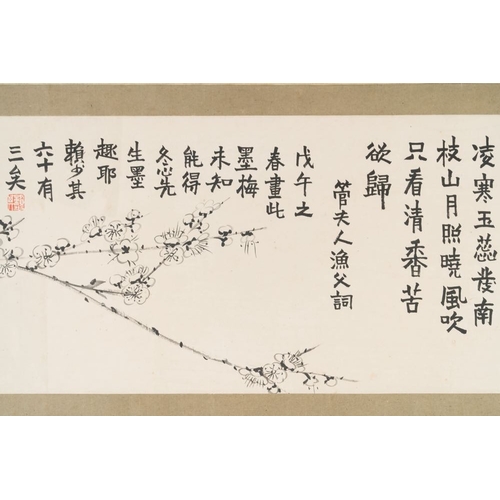 凌寒玉蕊發南
枝山月照曉風吹
只看清香苦
欲歸
管夫人漁父詞
戊午之
春畫此
墨梅
未知
能得
冬心先
生墨
趣耶
賴少其
六十有
三矣